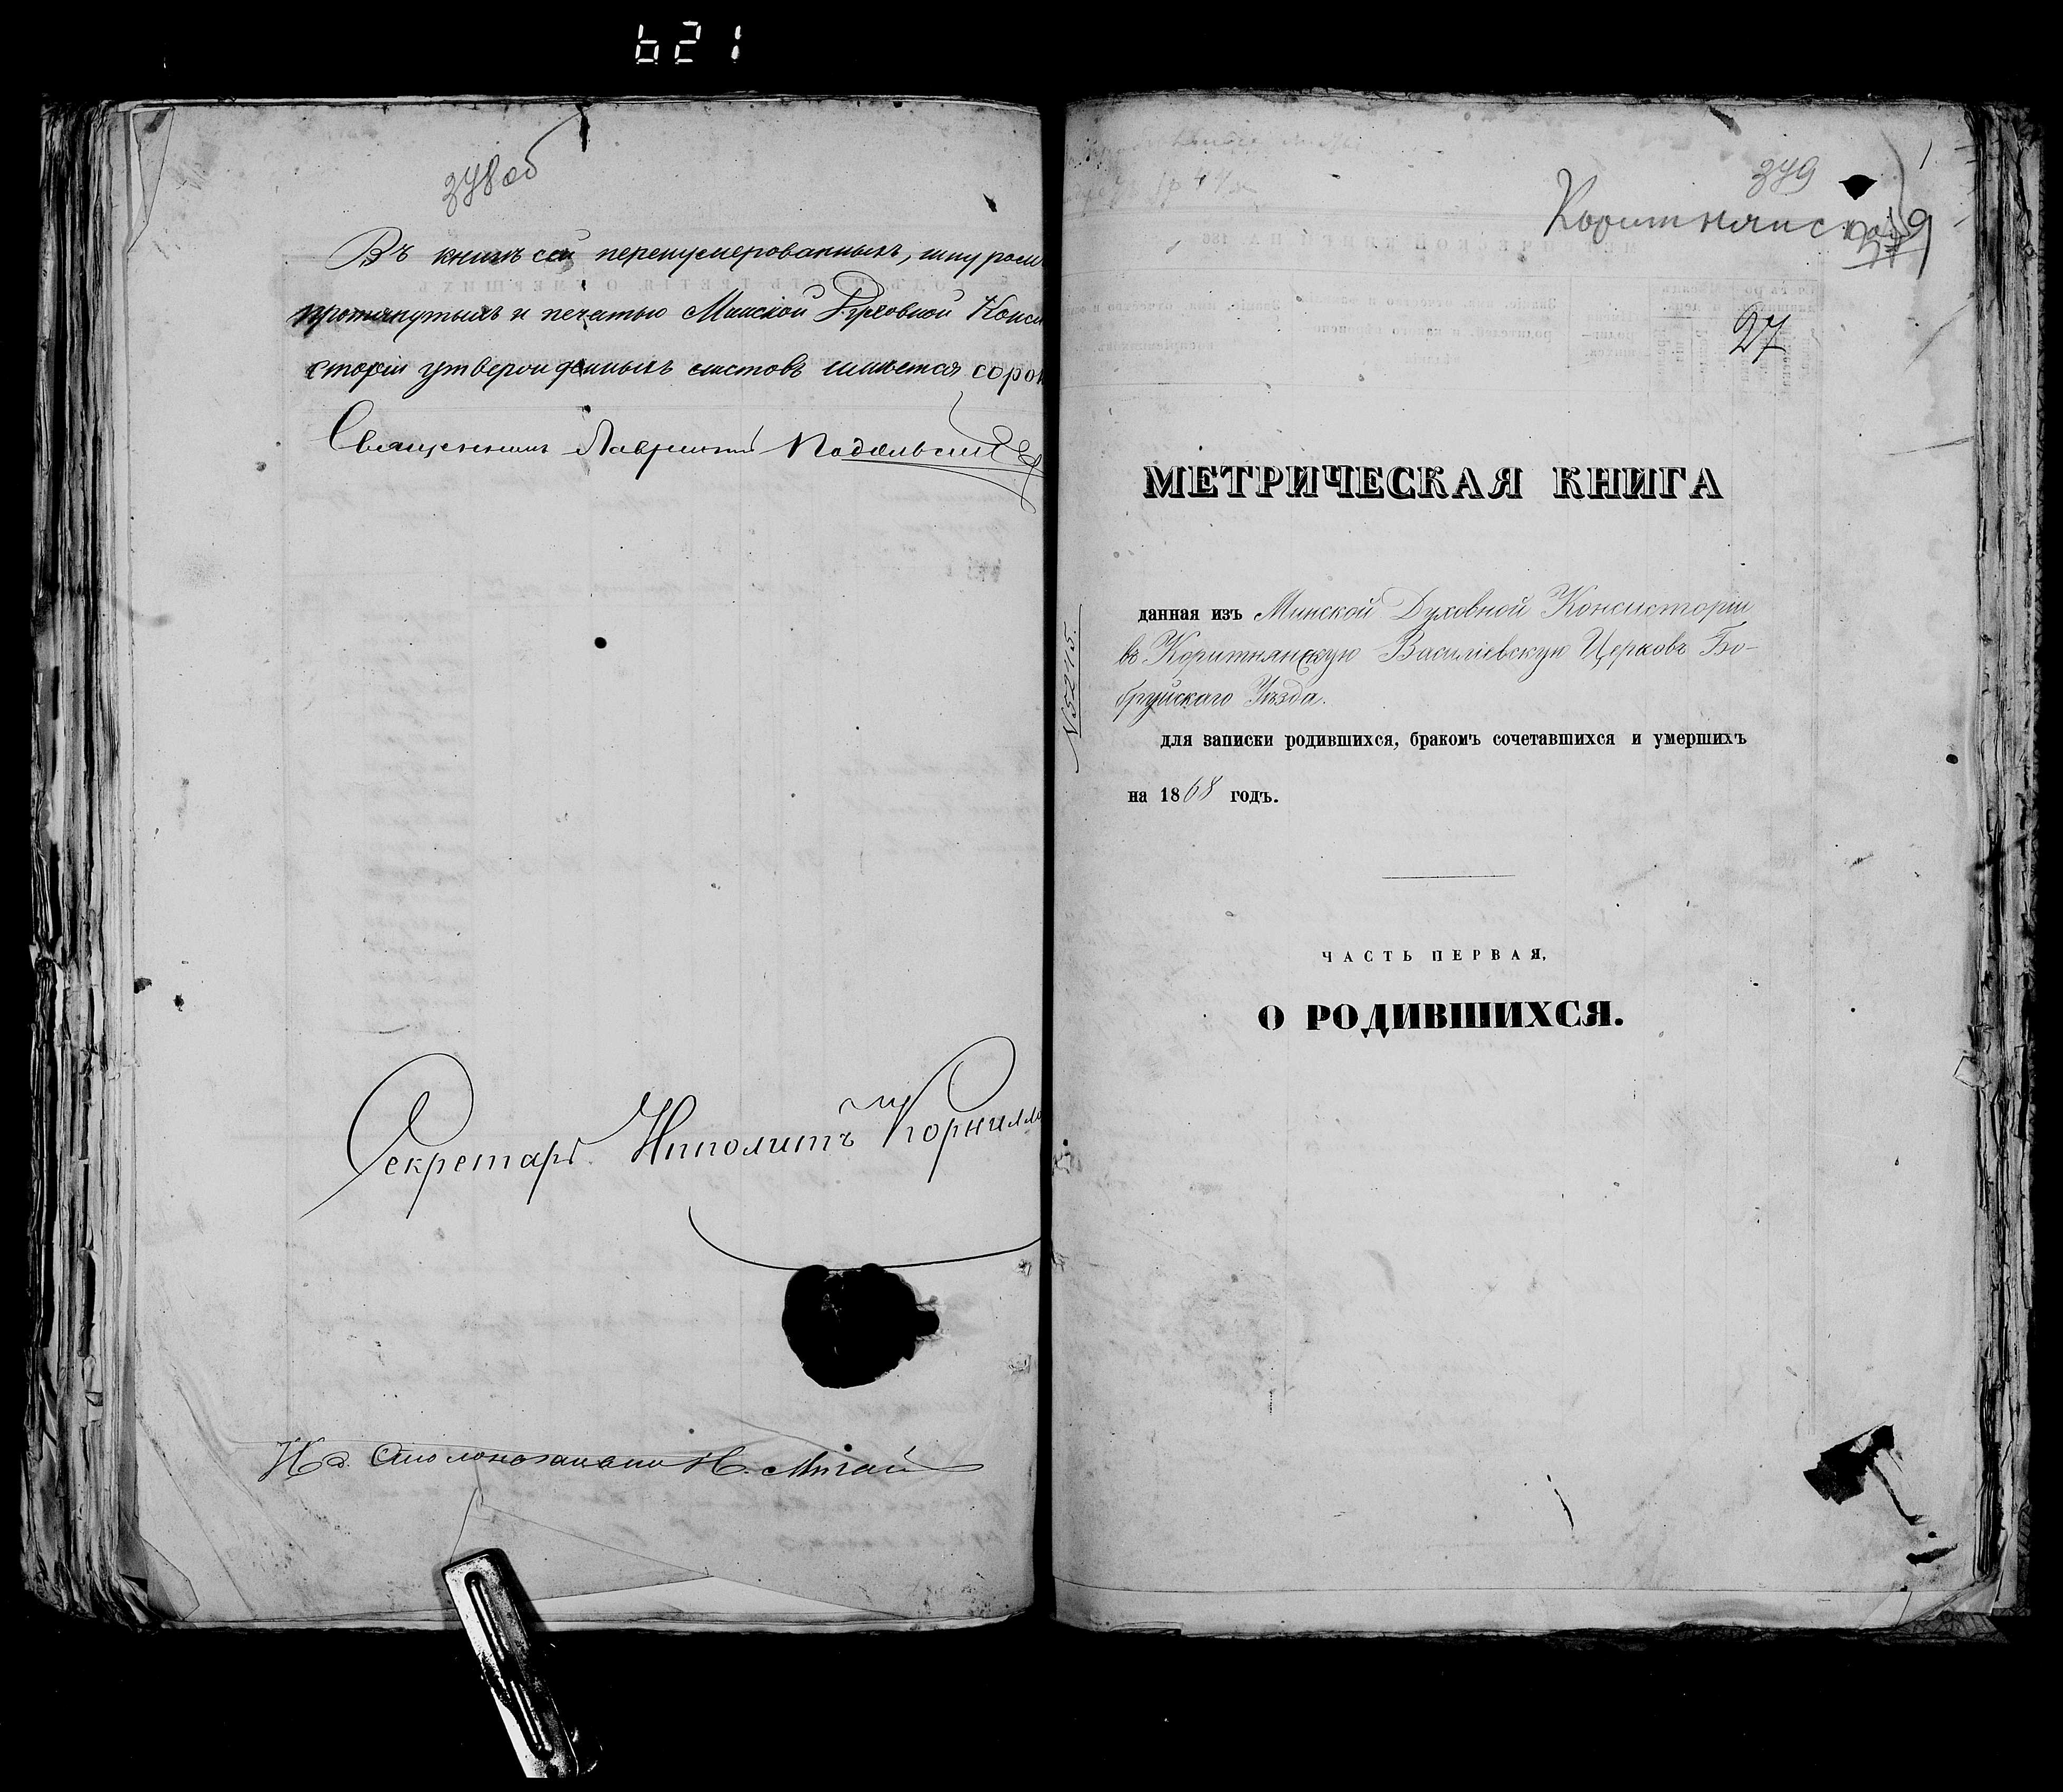 621
378 об
Въ книгѣ сей перенумерованныхъ, шнуромъ
протянутыхъ и печатью Минской Духовной Конси
сторіи утвержденныхъ листовъ имѣется сорок
Священникъ Лаврентій Подольскій
Секретарь Ипполитъ Корнилло
И. д. Столоначальника Н.
379
1
Коритнянская
27
МЕТРИЧЕСКАЯ КНИГА
данная изъ Минской Духовной Консисторіи
въ Коритнянскую Василіевскую Церковь Бо-
бруйскаго Уѣзда.
для записки родившихся, бракомъ сочетавшихся и умершихъ
на 1868 годъ.
№ 5245.
ЧАСТЬ ПЕРВАЯ,
О РОДИВШИХСЯ.